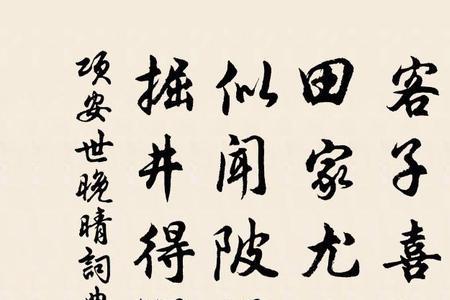 客子喜
田家尤
似闻陂
掘井得
项安世晚晴词典